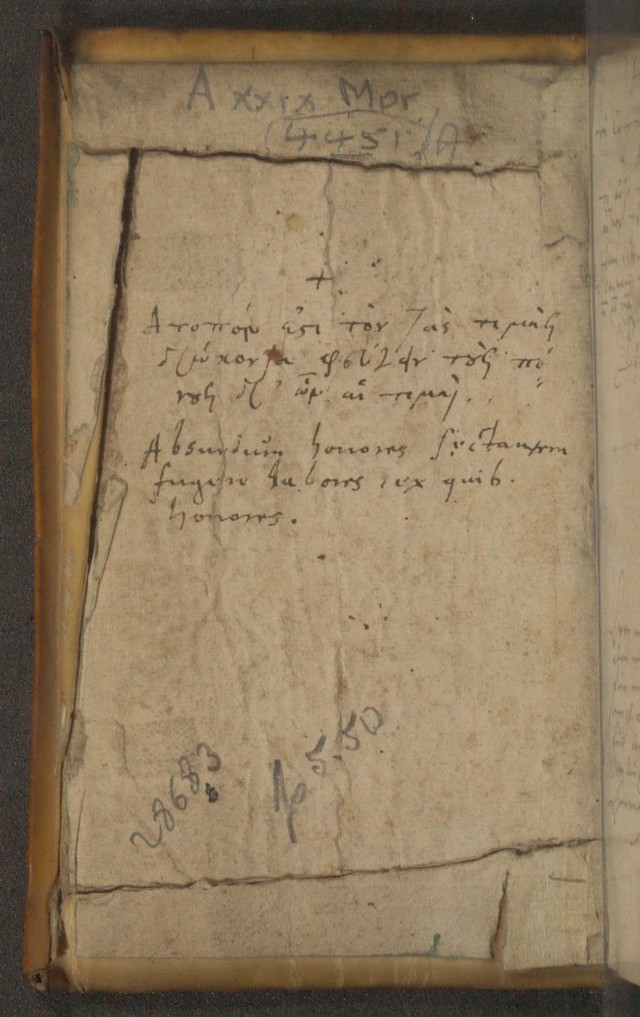 A xxix Mor
4451/A
+
Ατοπόν ἐςι τὸν τὰς τιμὰς
διώκοντα φεύγειν τοὺς πό-
νους δι' ὧν αἱ τιμαί.
Absurdum honores sectantem
fugere labores, ex quib.
honores.
28683
5.50